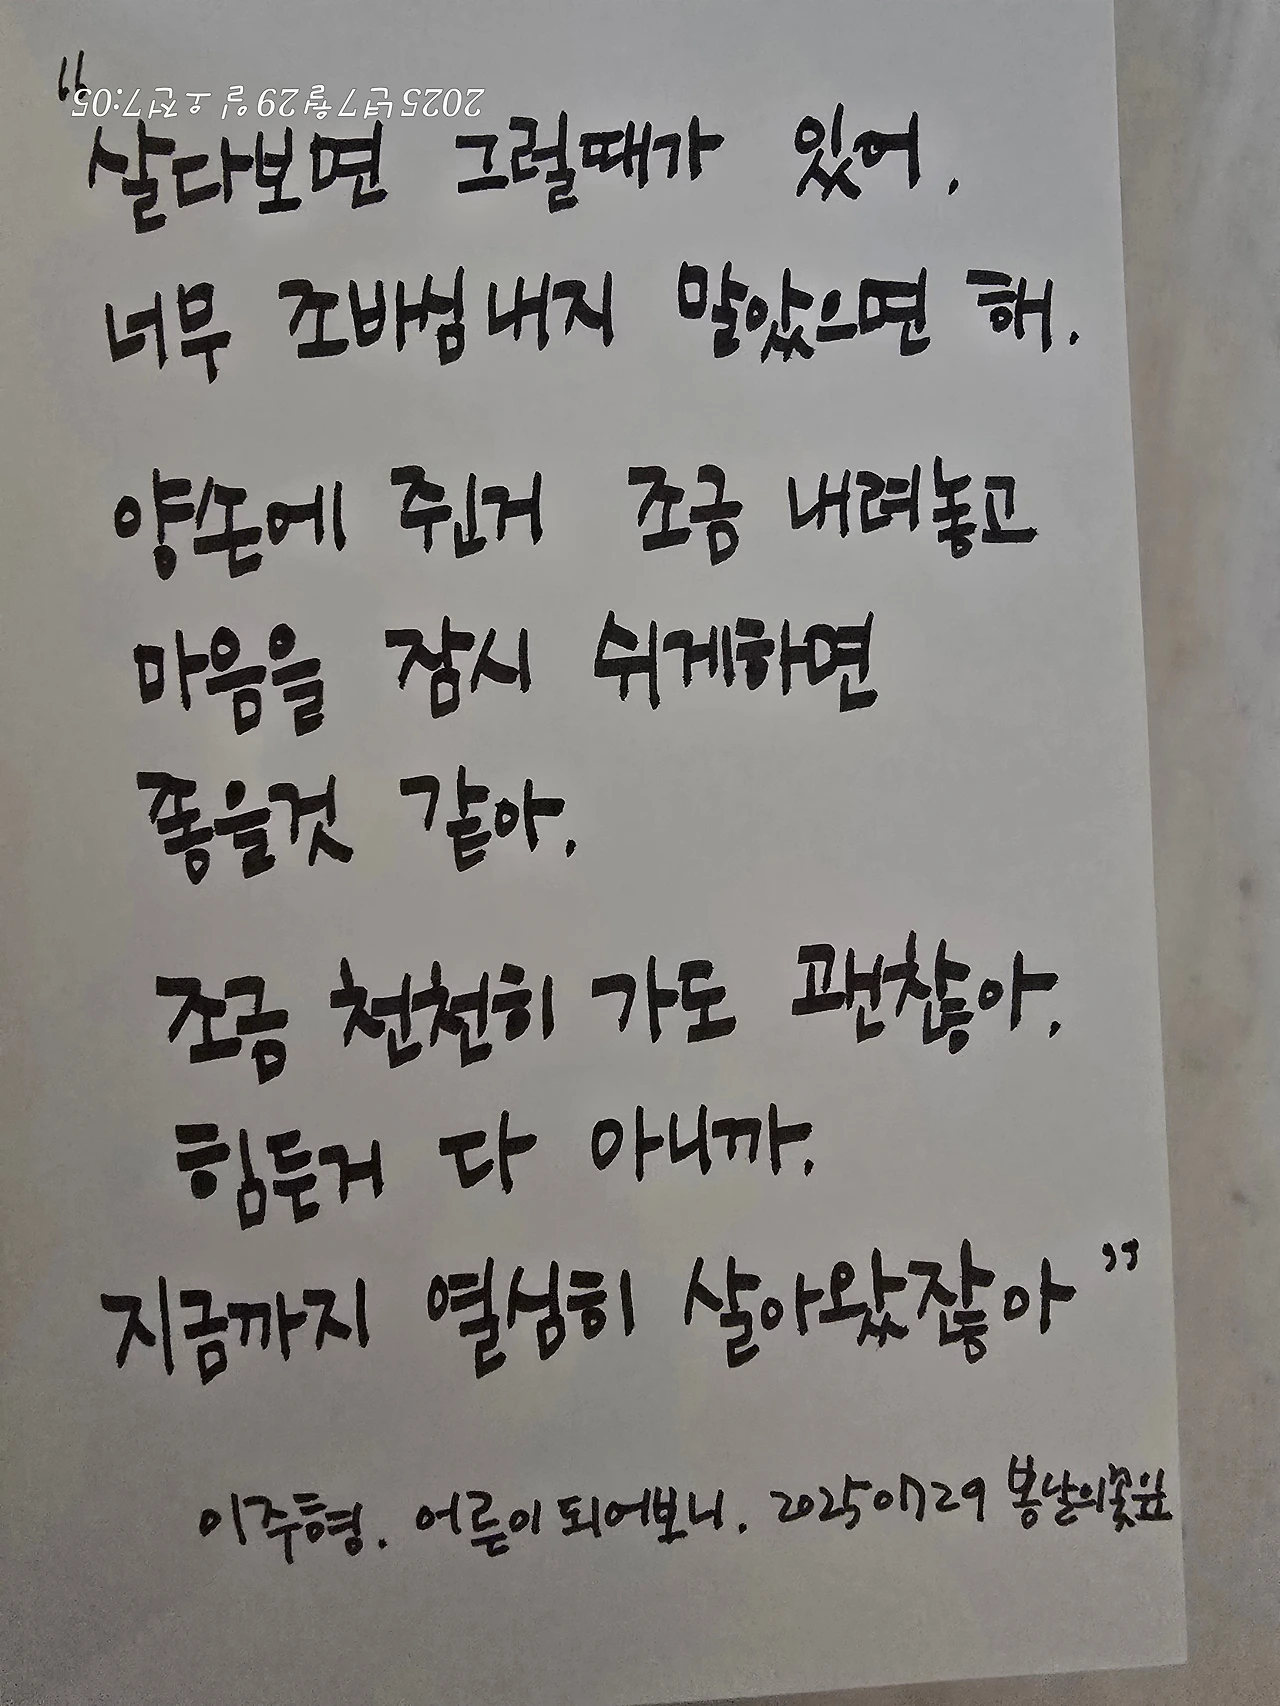 2025년 7월 29일 오전 7:05
“
살다보면 그럴때가 있어.
너무 조바심내지 말았으면 해.
양손에 쥔거 조금 내려놓고
마음을 잠시 쉬게하면
좋을것 같아.
조금 천천히 가도 괜찮아.
힘든거 다 아니까.
지금까지 열심히 살아왔잖아”
이주형. 어른이 되어보니. 20250729 봄날의꽃잎